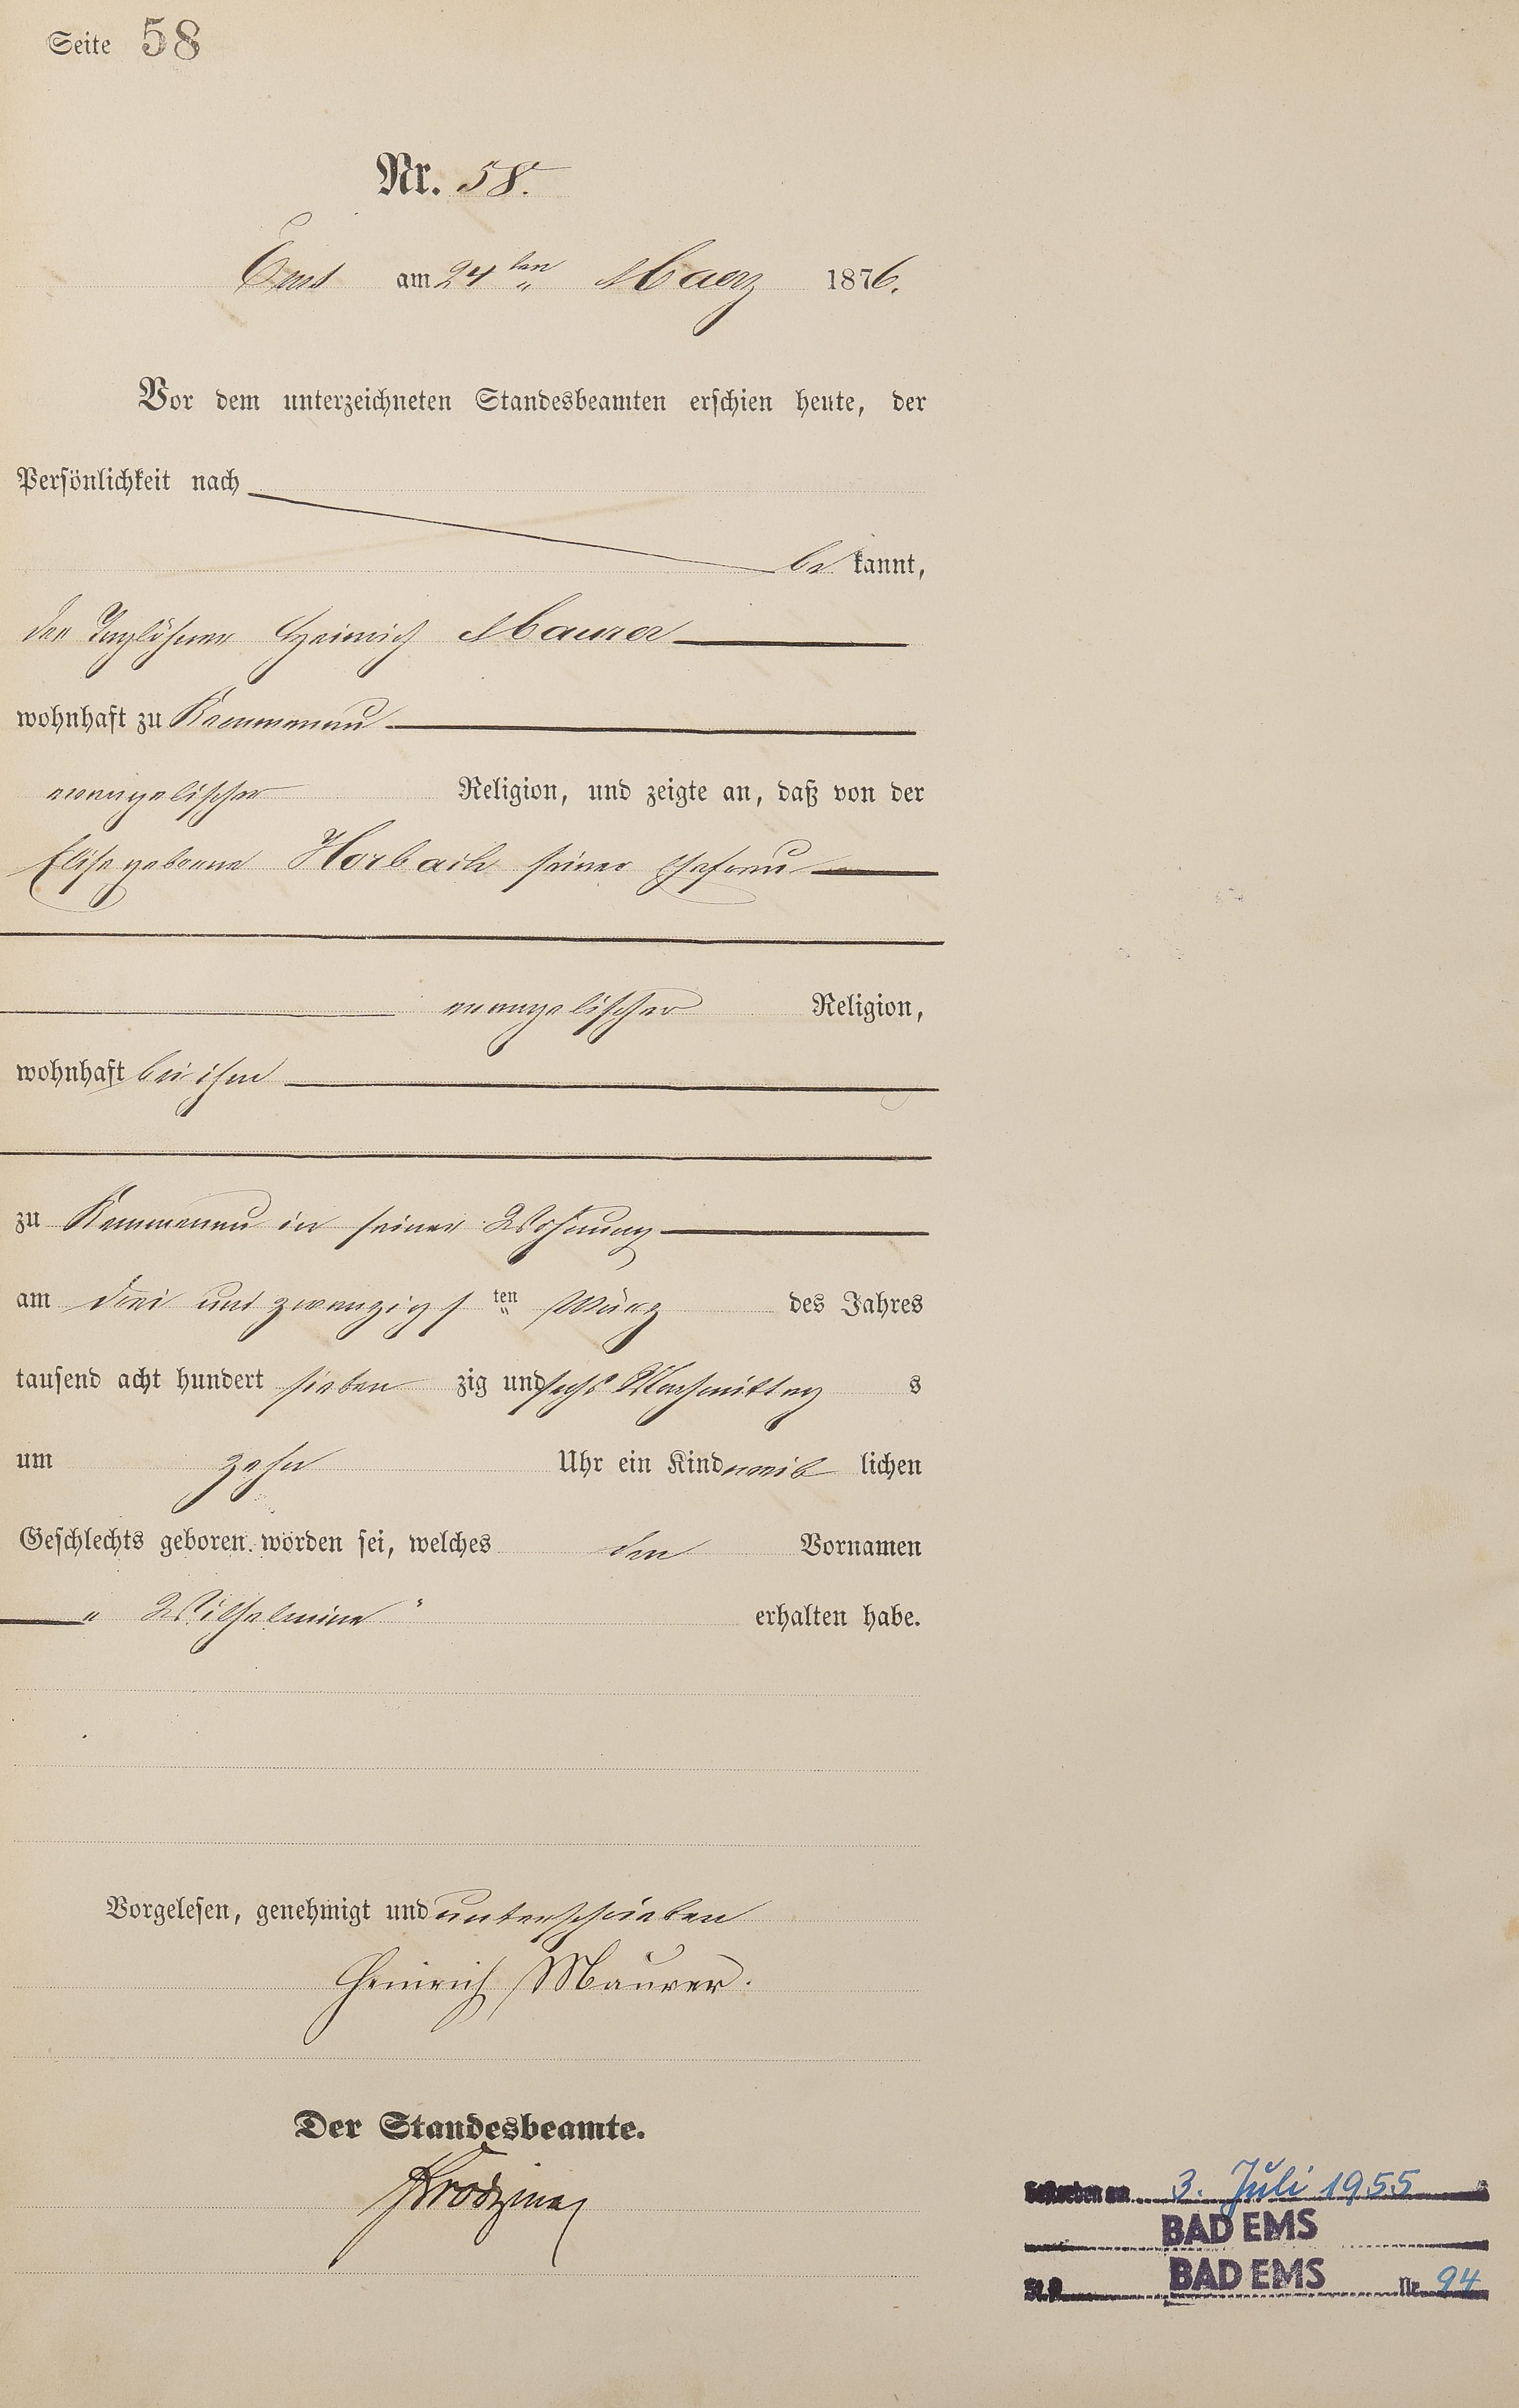 Seite 58
Nr. 58.
Ems am 24ten Maerz 1876.
Vor dem unterzeichneten Standesbeamten erschien heute, der
Persönlichkeit nach
be kannt,
der Taglöhner Heinrich Maurer
wohnhaft zu Kemmenau
evangelischer Religion, und zeigte an, daß von der
Elise geborene Horbach seiner Ehefrau
evangelischer Religion,
wohnhaft bei ihm
zu Kemmenau in seiner Wohnung
am drei und zwanzigsten März des Jahres
tausend acht hundert sieben zig und sechs Nachmittag s
um zehn Uhr ein Kind weib lichen
Geschlechts geboren worden sei, welches den Vornamen
„ Wilhelmine " erhalten habe.
Vorgelesen, genehmigt und unterschrieben
Heinrich Maurer.
Der Standesbeamte.
Gestorben am 3. Juli 1955
BAD EMS
St.A. BAD EMS Nr. 94